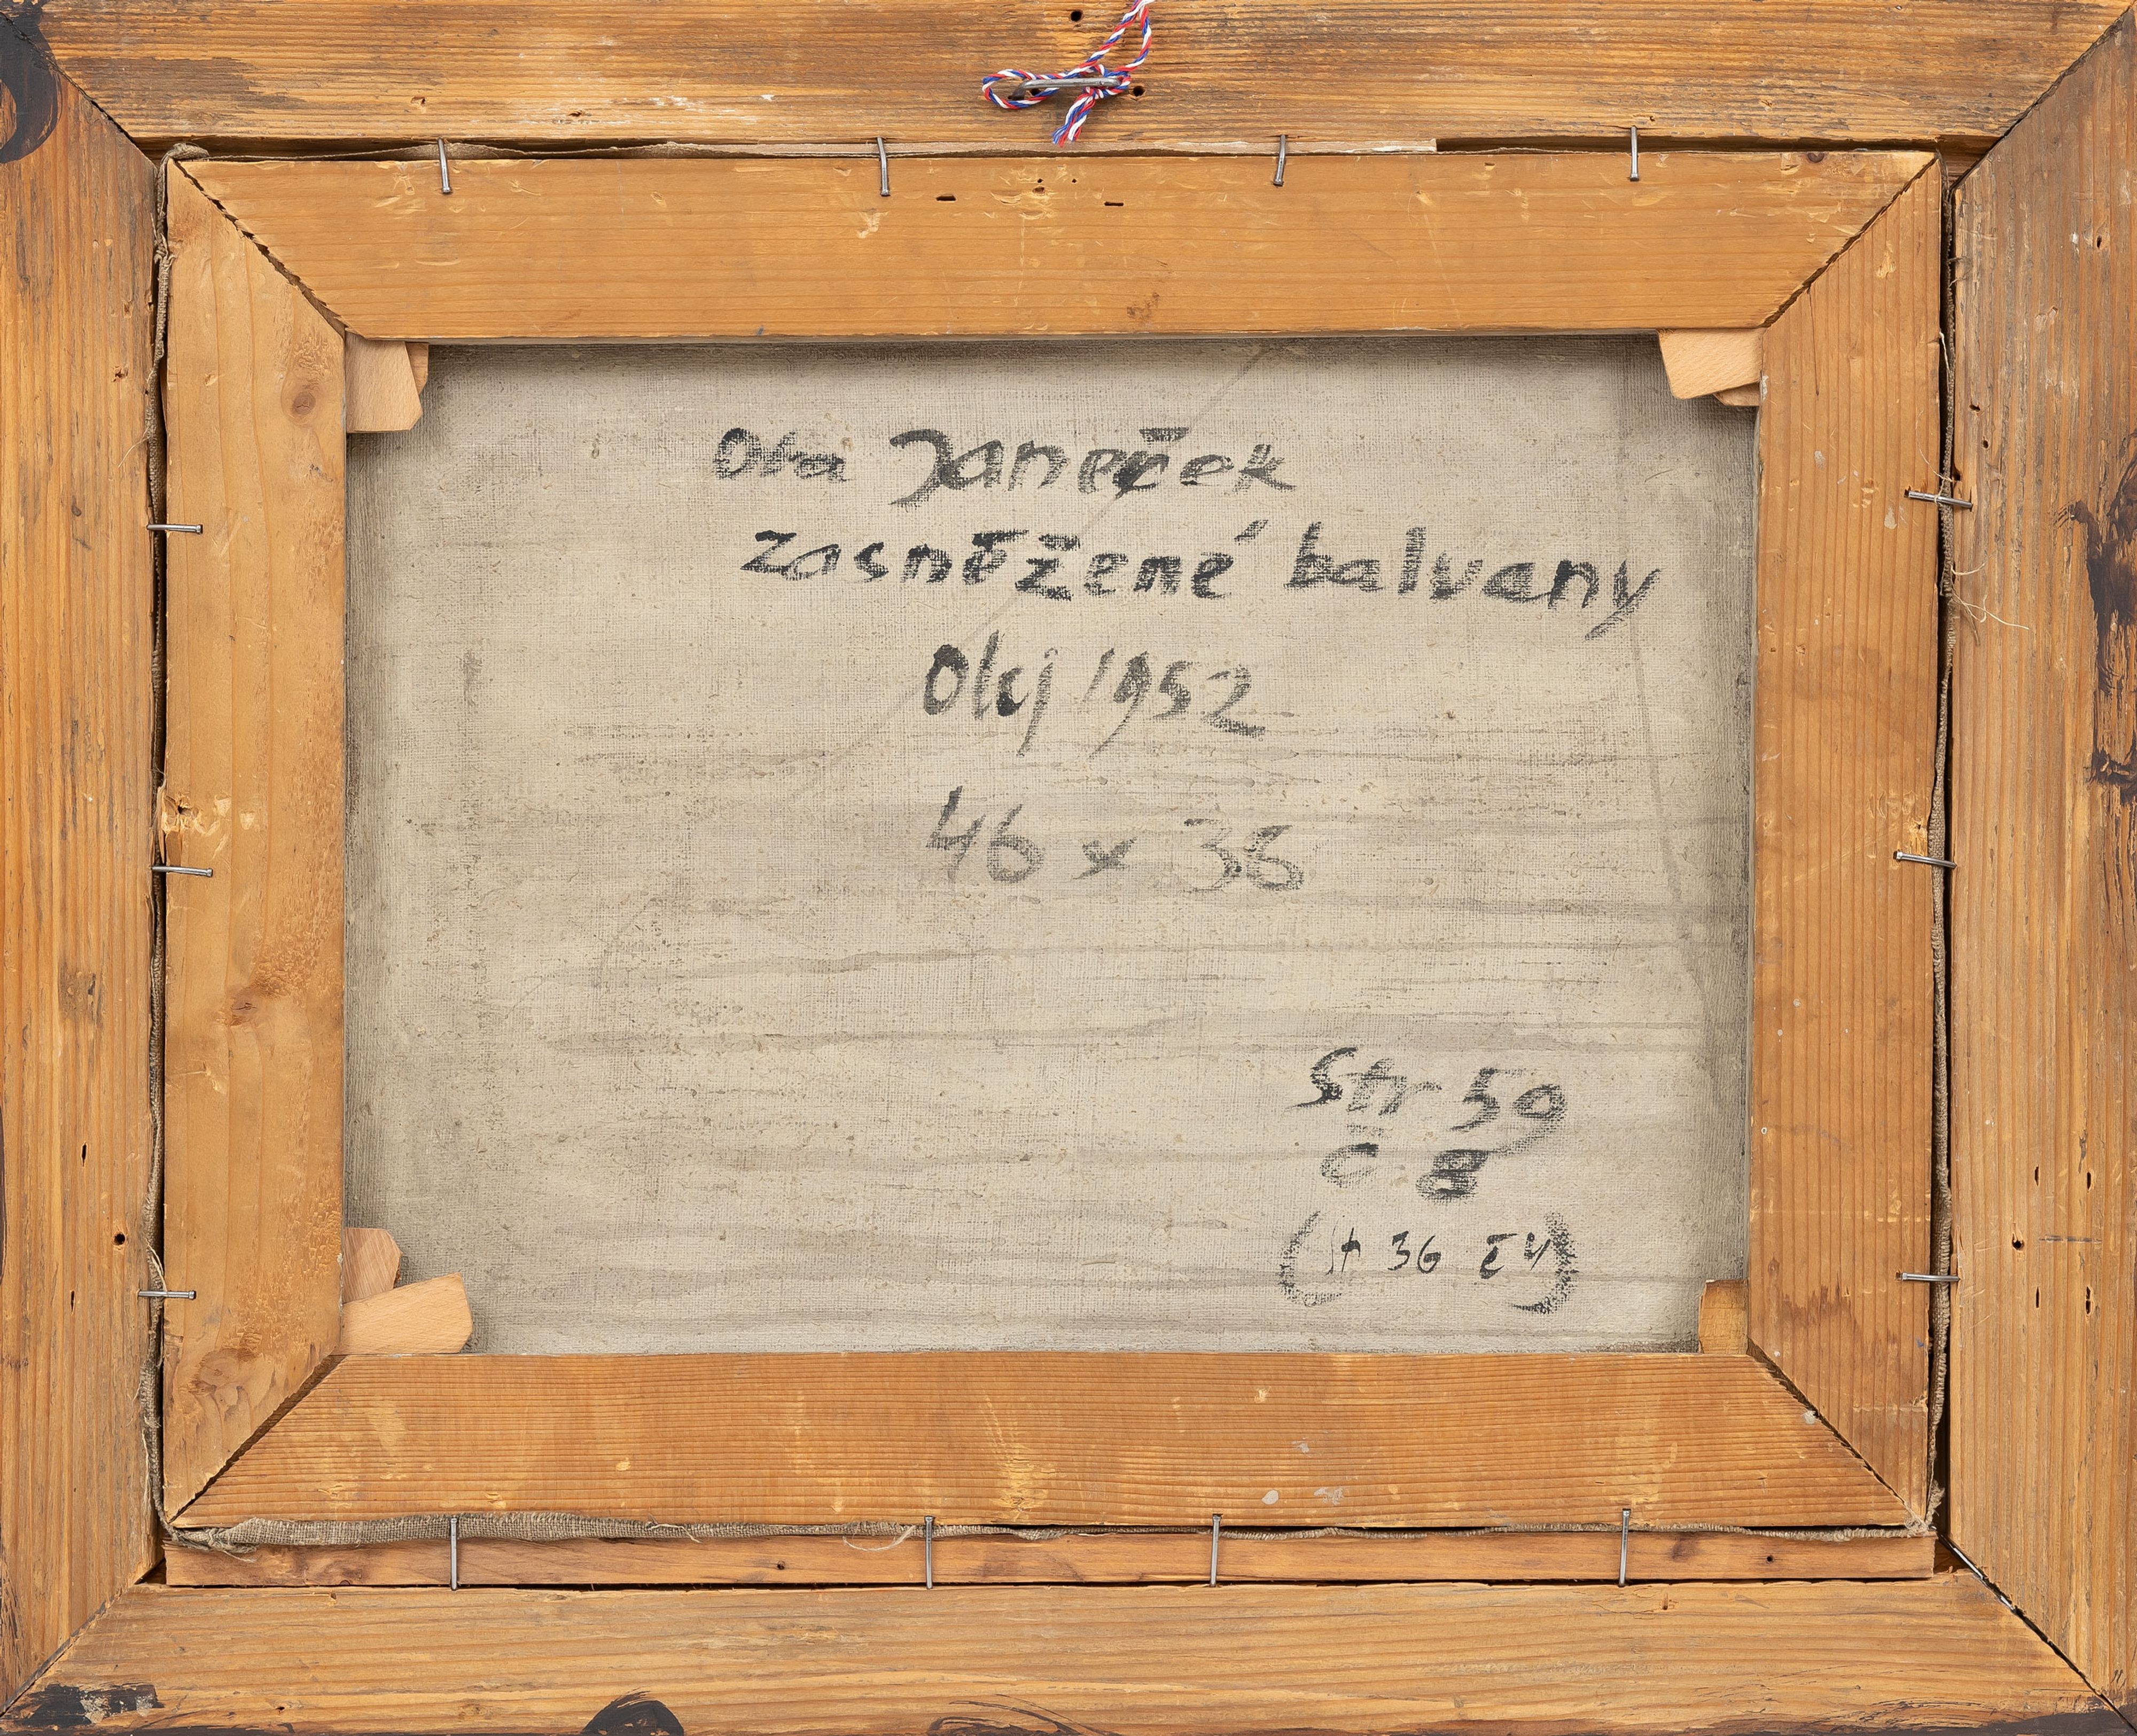 Ota Janeček
zasněžené balvany
Olej 1952
46 x 36
Str 59
č 8
( 36 )